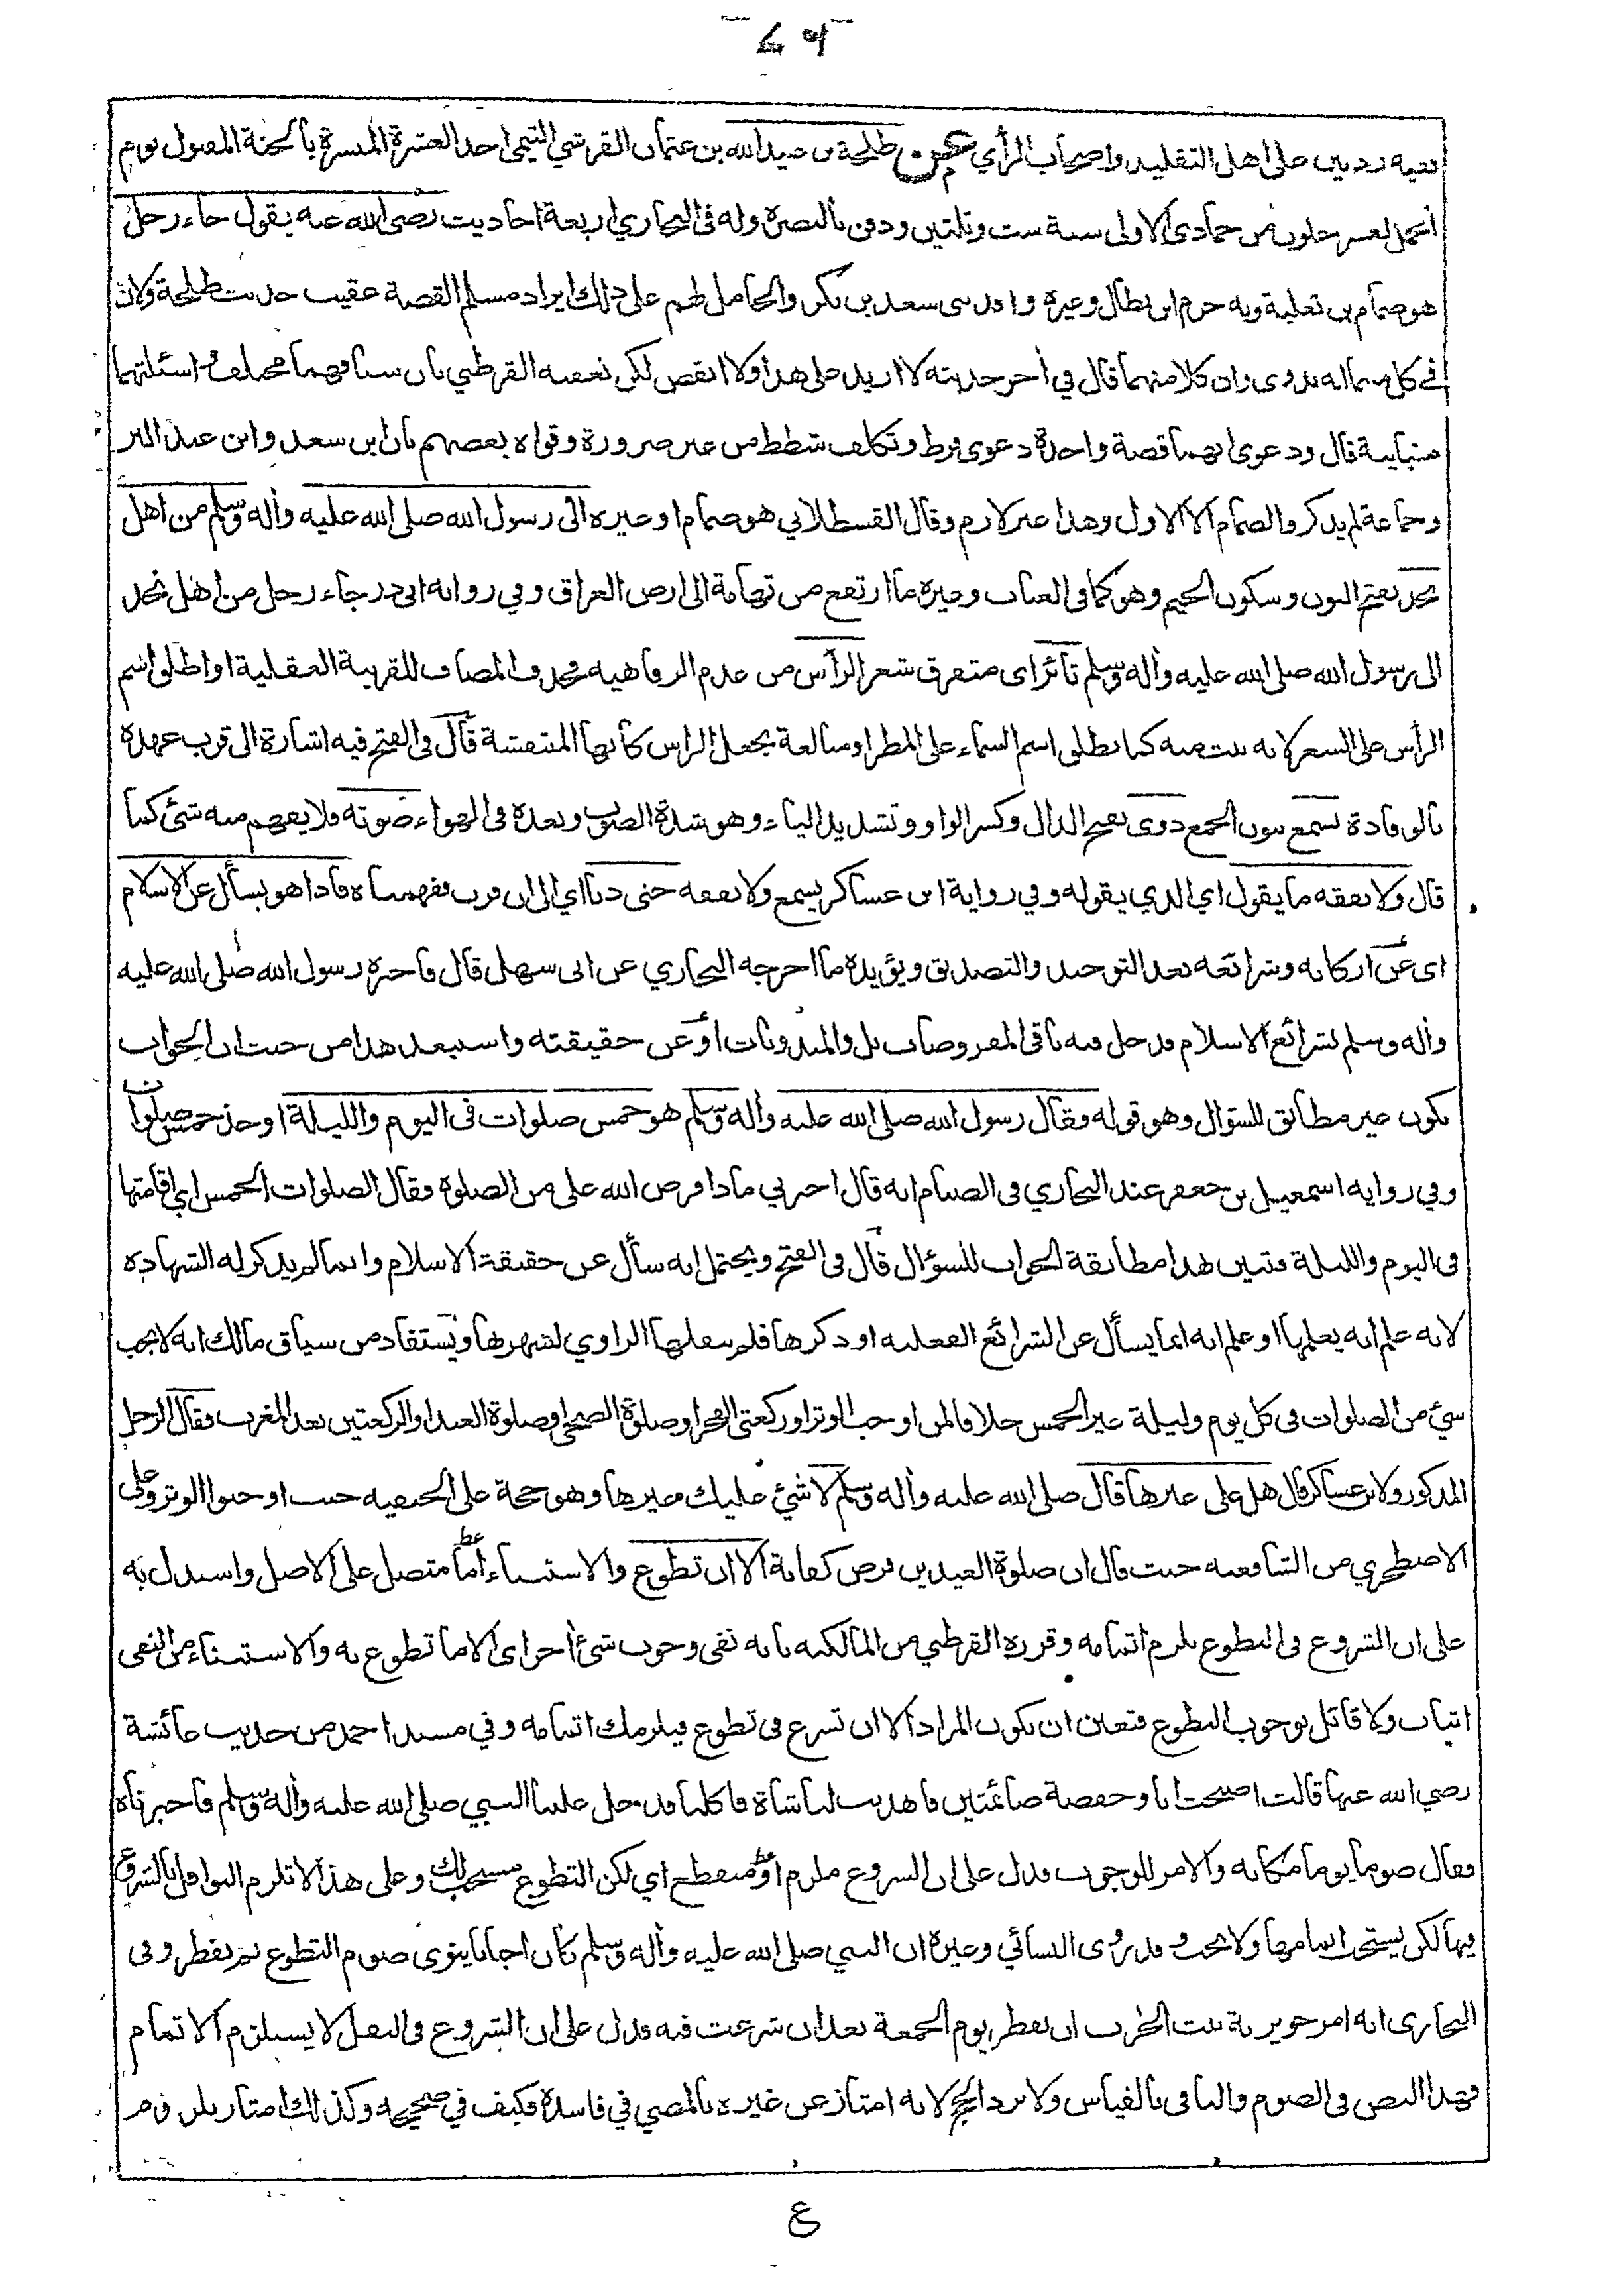 ففيه رد بين على اهل التقليد واصحاب الرأي عن طلحة بن عبيد الله بن عثمان القرشي التيمي احد العشرة المبشرة بالجنة المقتول يوم
الجمل لعشر خلون من جمادى الاولى سنة ست وثلثين ودفن بالبصرة وله في البخاري اربعة احاديث رضى الله عنه يقول جاء رجل
هو ضمام بن ثعلبة وبه جزم ابن بطال وغيره وافد بنى سعد بن بكر والحامل لهم على ذلك ايراد مسلم القصة عقيب حديث طلحة ولان
في كل منهما انه بدوى وان كلا منهما قال في أخر حديثه لا ازيد على هذا ولا انقص لكن تعقبه القرطبي بان سياقهما مختلف واسئلتهما
متباينة قال ودعوى انهما قصة واحدة دعوى فرط وتكلف شطط من غير ضرورة وقواه بعضهم بان ابن سعد وابن عبد البر
وجماعة لم يذكروا لضمام الا الاول وهذا غير لازم وقال القسطلاني هو ضمام او غيره الى رسول الله صلى الله عليه وأله وسلم من اهل
نجد بفتح النون وسكون الجيم وهو كما في العباب وغيره ما ارتفع من تهامة الى ارض العراق وفي رواية ابى ذر جاء رجل من اهل نجد
الى رسول الله صلى الله عليه وأله وسلم ثائر اى متفرق شعر الرأس من عدم الرفاهيه فحذف المضاف للقرينة العقلية او اطلق اسم
الرأس على الشعر لانه نبت منه كما يطلق اسم السماء على المطر او مبالغة بجعل الراس كانها المنتفشة قال في الفتح فيه اشارة الى قرب عهده
بالوفادة نسمع بنون الجمع دوى بفتح الدال وكسر الواو وتشديد الياء وهو شدة الصوت وبعده في الهواء صوته فلا يفهم منه شئ كما
قال ولا نفقه ما يقول اي الذي يقوله وفي رواية ابن عساكر يسمع ولا يفقه حتى دنا اي الى ان قرب ففهمناه فاذا هو يسأل عن الاسلام
اى عن اركانه وشرائعه بعد التوحيد والتصديق ويؤيده ما اخرجه البخاري عن ابى سهل قال فاخبره رسول الله صلى الله عليه
وأله وسلم بشرائع الاسلام فدخل فيه باقى المفروضات بل والمندوبات او عن حقيقته واستبعد هذا من حيث ان الجواب
يكون غير مطابق للسؤال وهو قوله فقال رسول الله صلى الله عليه وأله وسلم هو خمس صلوات في اليوم والليلة او خذ خمس صلوات
وفي رواية اسمعيل بن جعفر عند البخاري في الصيام انه قال اخبرني ماذا فرض الله على من الصلوة فقال الصلوات الخمس اي اقامتها
في اليوم والليلة فتبين بهذا مطابقة الجواب للسؤال قال في الفتح ويحتمل انه سأل عن حقيقة الاسلام وانما لم يذكر له الشهادة
لانه علم انه يعلمها او علم انه انما يسأل عن الشرائع الفعلية او ذكرها فلم ينقلها الراوي لشهرتها ويستفاد من سياق مالك انه لا يجب
شئ من الصلوات في كل يوم وليلة غير الخمس خلافا لمن اوجب الوتر او ركعتى الفجر او صلوة الضحى او صلوة العيد او الركعتين بعد المغرب فقال الرجل
المذكور ولابن عساكر قال هل على غيرها قال صلى الله عليه وأله وسلم لا شئ عليك غيرها وهو حجة على الحنفية حيث اوجبوا الوتر وعلى
الاصطخري من الشافعية حيث قال ان صلوة العيدين فرض كفاية الا ان تطوع والاستثناء اما متصل على الاصل واستدل به
على ان الشروع في التطوع يلزم اتمامه وقرره القرطبي من المالكية بانه نفى وجوب شئ أخر اى الا ما تطوع به والاستثناء من النفى
اثبات ولا قائل بوجوب التطوع فتعين ان يكون المراد الا ان تشرع في تطوع فيلزمك اتمامه وفي مسند احمد من حديث عائشة
رضي الله عنها قالت اصبحت انا وحفصة صائمتين فاهديت لنا شاة فاكلنا فدخل علينا النبي صلى الله عليه وأله وسلم فاخبرناه
فقال صوما يوما مكانه والامر للوجوب فدل على ان الشروع ملزم او منقطع اي لكن التطوع مستحب لك وعلى هذا لا تلزم النوافل بالشروع
فيها لكن يستحب اتمامها ولا يجب وقد روى النسائي وغيره ان النبي صلى الله عليه وأله وسلم كان احيانا ينوى صوم التطوع ثم يفطر وفى
البخارى انه امر جويرية بنت الحرث ان تفطر يوم الجمعة بعد ان شرعت فيه فدل على ان الشروع في النفل لا يستلزم الاتمام
فهذا النص في الصوم والباقى بالقياس ولا يرد الحج لانه امتاز عن غيره بالمضي في فاسده فكيف في صحيحه وكذلك امتاز بلزوم
ع